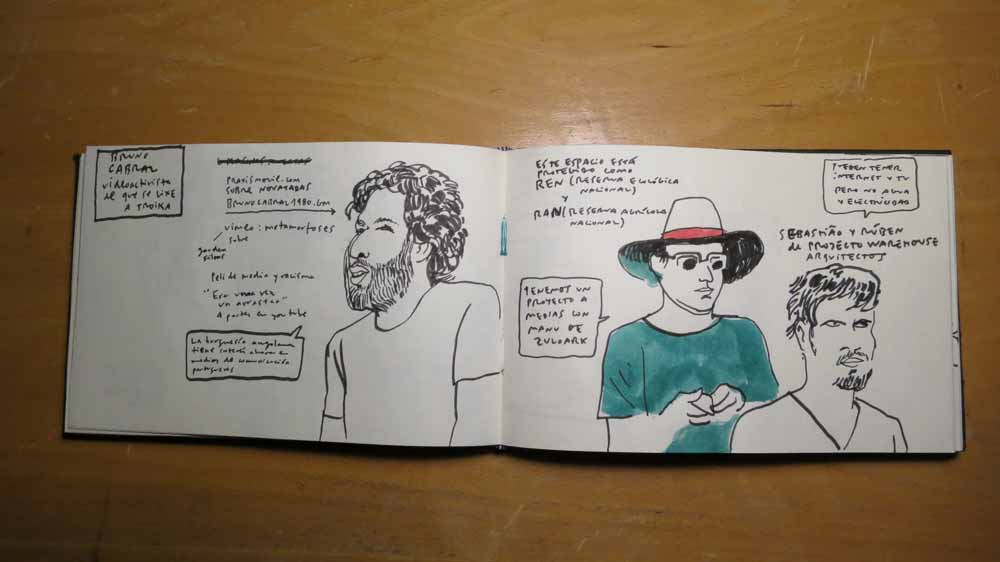 BRUNO
CABRAL
videoactivista
del que se lixe
A TROIKA
pratismovil.com
SOBRE NOVACADAS
BRUNOCABRAL1980.com
vimeo: metamorfoses
sobre
garden
films
Peli de media y racismo
"Era uma vez
un arrastão"
A partes en youtube
La burguesía angolana
tiene interés ahora en
medios de comunicación
portugueses
ESTE ESPACIO ESTÁ
PROTEGIDO COMO
REN (RESERVA ECOLÓGICA
NACIONAL)
Y
RAN (RESERVA AGRÍCOLA
NACIONAL)
TENEMOS UN
PROYECTO A
MEDIAS CON
MANU DE
ZULOARK
PUEDEN TENER
INTERNET Y TV
PERO NO AGUA
Y ELECTRICIDAD
SEBASTIÃO Y RÚBEN
de PROYECTO WAREHOUSE
ARQUITECTOS